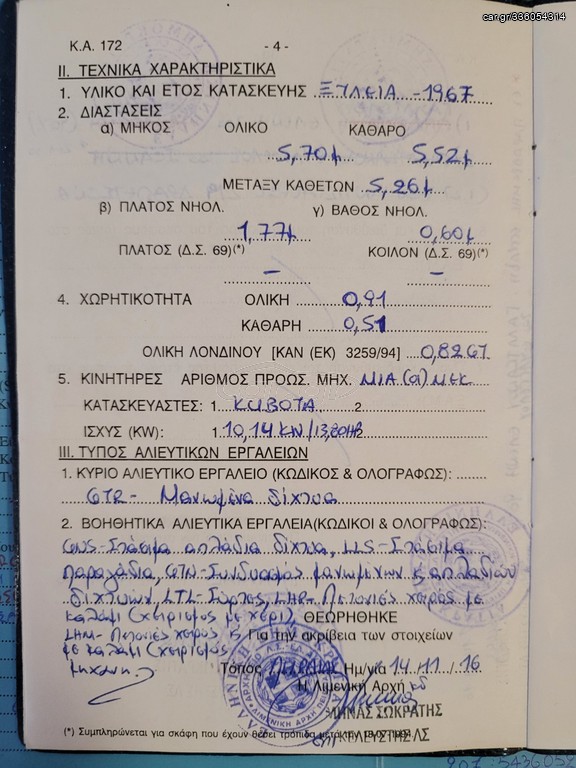 car.gr/336054314
Κ.Α. 172 - 4 -
II. ΤΕΧΝΙΚΑ ΧΑΡΑΚΤΗΡΙΣΤΙΚΑ
1. ΥΛΙΚΟ ΚΑΙ ΕΤΟΣ ΚΑΤΑΣΚΕΥΗΣ ΞΥΛΕΙΑ -1967
2. ΔΙΑΣΤΑΣΕΙΣ
α) ΜΗΚΟΣ ΟΛΙΚΟ ΚΑΘΑΡΟ
5,70μ 5,52μ
ΜΕΤΑΞΥ ΚΑΘΕΤΩΝ 5,26μ
β) ΠΛΑΤΟΣ ΝΗΟΛ. γ) ΒΑΘΟΣ ΝΗΟΛ.
1,77μ 0,60μ
ΠΛΑΤΟΣ (Δ.Σ. 69)(*) ΚΟΙΛΟΝ (Δ.Σ. 69)(*)
– –
4. ΧΩΡΗΤΙΚΟΤΗΤΑ ΟΛΙΚΗ 0,91
ΚΑΘΑΡΗ 0,51
ΟΛΙΚΗ ΛΟΝΔΙΝΟΥ [ΚΑΝ (ΕΚ) 3259/94] 0,82GT
5. ΚΙΝΗΤΗΡΕΣ ΑΡΙΘΜΟΣ ΠΡΟΩΣ. ΜΗΧ. ΜΙΑ (1) ΜΕΚ.
ΚΑΤΑΣΚΕΥΑΣΤΕΣ: 1 KUBOTA 2
ΙΣΧΥΣ (KW): 1. 10,14KW/13,80HB
III. ΤΥΠΟΣ ΑΛΙΕΥΤΙΚΩΝ ΕΡΓΑΛΕΙΩΝ
1. ΚΥΡΙΟ ΑΛΙΕΥΤΙΚΟ ΕΡΓΑΛΕΙΟ (ΚΩΔΙΚΟΣ & ΟΛΟΓΡΑΦΩΣ):
GTR- Μανωμένα δίχτυα
2. ΒΟΗΘΗΤΙΚΑ ΑΛΙΕΥΤΙΚΑ ΕΡΓΑΛΕΙΑ(ΚΩΔΙΚΟΙ & ΟΛΟΓΡΑΦΩΣ):
GNS-Στάσιμα απλάδια δίχτυα, LLS-Στάσιμα
παραγάδια, GTN-Συνδυασμός μανωμένων & απλαδίων
διχτυών, LTL-Συρτές, LHP-Πετονιές χειρός με
καλάμι (χειρισμός με χέρι) ΘΕΩΡΗΘΗΚΕ
LHM- Πετονιές χειρός & Για την ακρίβεια των στοιχείων
με καλάμι (χειρισμός
μηχανή) Τόπος ΠΕΙΡΑΙΑΣ Ημ/νία 14/11/16
Η Λιμενική Αρχή
ΜΗΝΑΣ ΣΩΚΡΑΤΗΣ
ΚΕΛΕΥΣΤΗΣ ΛΣ
(*) Συμπληρώνεται για σκάφη που έχουν θέσει τρόπιδα μετά την 18-07-1994